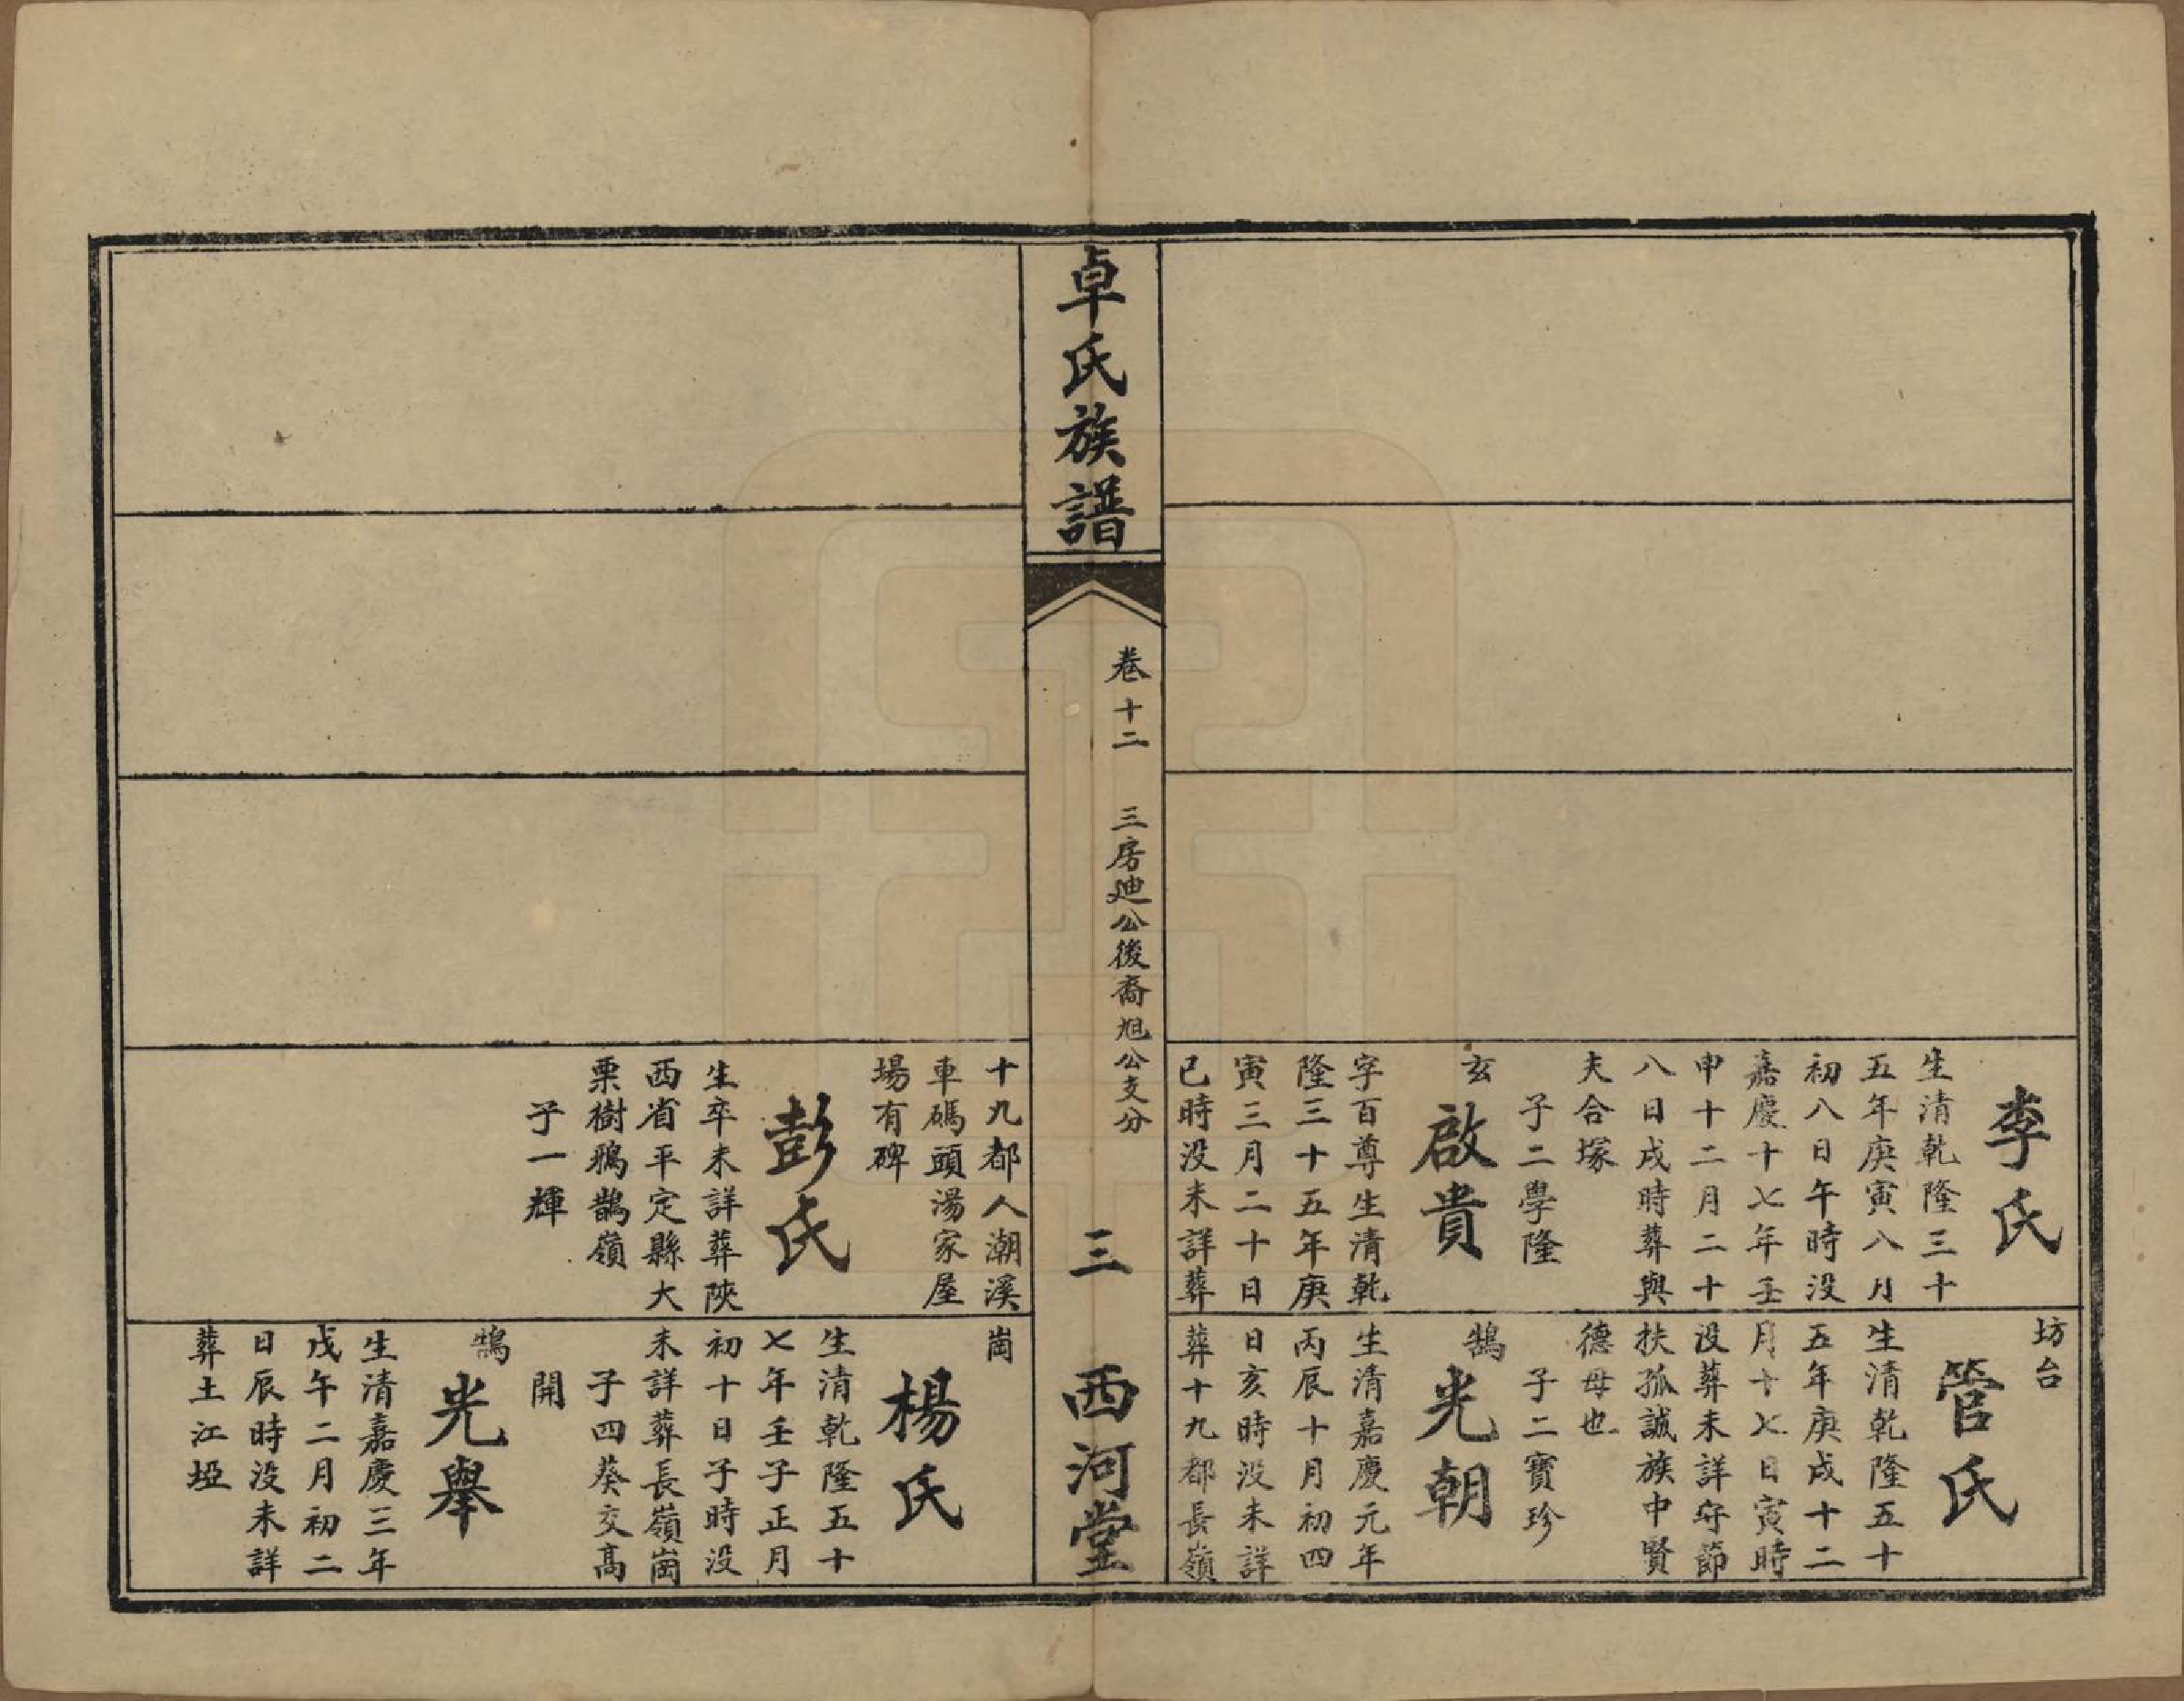 李氏
生清乾隆三十
五年庚寅八月
初八日午時没
嘉慶十七年壬
申十二月二十
八日戌時葬與
夫合塚
子二學隆
玄
啟貴
字百尊生清乾
隆三十五年庚
寅三月二十日
已時没未詳葬
坊台
管氏
生清乾隆五十
五年庚戌十二
月十七日寅時
没葬未詳守節
扶孤誠族中賢
德母也
子二寶珍
鵠
光朝
生清嘉慶元年
丙辰十月初四
日亥時没未詳
葬十九都長嶺
卓氏族譜
卷十二 三房迪公後裔旭公支分
三 西河堂
十九都人潮溪
車碼頭湯家屋
場有碑
彭氏
生卒未詳葬陝
西省平定縣大
栗樹鴉鵲嶺
子一輝
崗
楊氏
生清乾隆五十
七年壬子正月
初十日子時没
未詳葬長嶺崗
子四葵交高
開
鵠
光舉
生清嘉慶三年
戊午二月初二
日辰時没未詳
葬土江埡